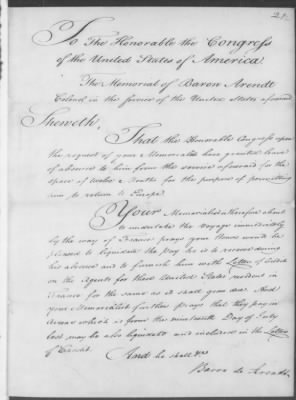 21
To The Honorable the Congress
of the United States of America.
The Memorial of Baron Arendt
Colonel in the service of the United States aforesaid
Sheweth,
That the Honorable Congress upon
the request of your Memorialist have granted leave
of absence to him from the service aforesaid for the
space of twelve Months for the purpose of permitting
him to return to Europe.
Your Memorialist therefore about
to undertake the Voyage immediately
by the way of France prays your Honors would be
pleased to liquidate the Pay he is to receive during
his absence and to furnish him with Letters of Credit
on the Agents for these United States resident in
France for the same as it shall grow due. And
your Memorialist further prays that the pay in
Arrear which is from the nineteenth Day of July
last may be also liquidated and included in the Letters
of Credit.
And he shall &ca
Baron de Arendt